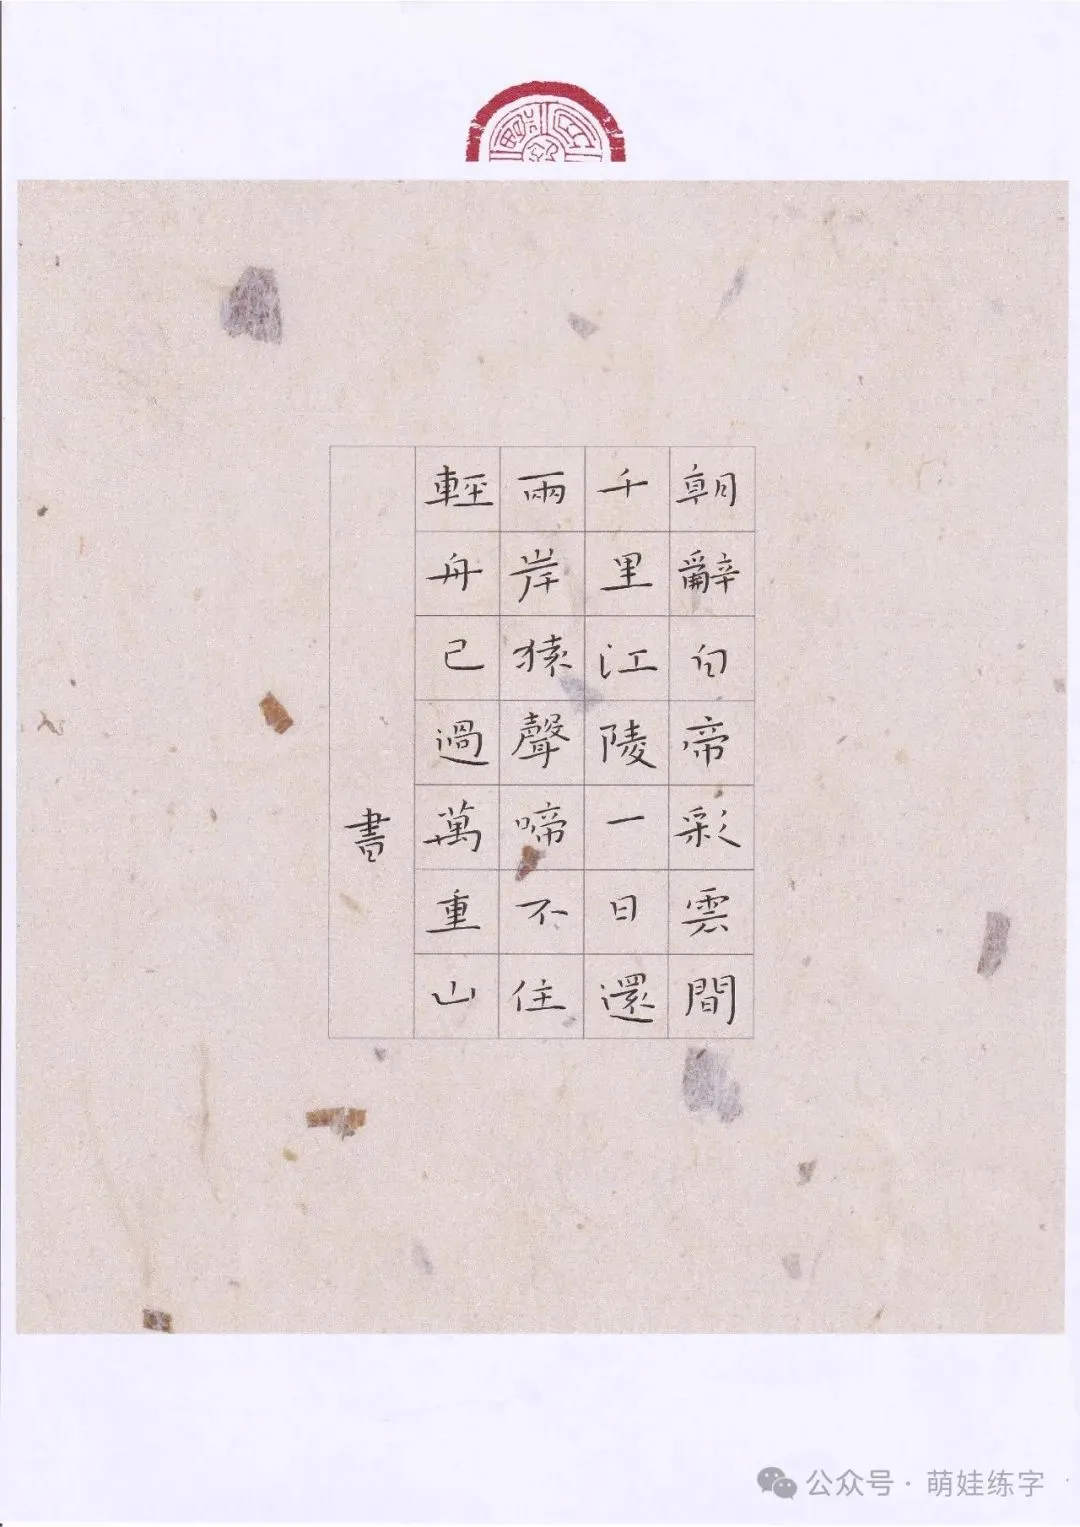 朝辭白帝彩雲間
千里江陵一日還
兩岸猿聲啼不住
輕舟已過萬重山
書
公众号 · 萌娃练字